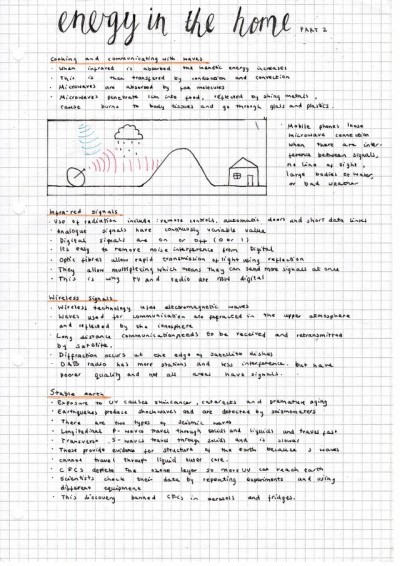 energy in the home PART 2
Cooking and communicating with waves
· When infrared is absorbed the kinetic energy increases
· This is then transfered by conduction and convection
· Microwaves are absorbed by fat molecules
· Microwaves penetrate 1cm into food, reflected by shiny metals,
cause burns to body tissues and go through glass and plastics.
· Mobile phones loose
microwave connection
when there are inter-
ference between signals,
no line of sight,
large bodies of water,
or bad weather
Infra-red signals
· Use of radiation include: remote controls, automatic doors and short data links
· Analogue signals have continously variable value
· Digital signals are on or off (0 or 1)
· Its easy to remove noise interference from Digital
· Optic fibres allow rapid transmission of light using reflection
· They allow multiplexing which means they can send more signals at once
· This is why TV and radio are now digital
Wireless signals
· Wireless technology uses electromagnetic waves
· Waves used for communication are refracted in the upper atmosphere
and reflected by the ionosphere
Long distance communication needs to be received and retransmitted
by satelite.
· Diffraction occurs at the edge of satellite dishes
· DAB radio has more stations and less interference. but have
poorer quality and not all areas have signals.
Stable earth
· Exposure to UV causes skin cancer, cataracts and premature aging
· Earthquakes produce shockwaves and are detected by seismometers
· There are two types of seismic waves
· Longitudinal P-waves travel through solids and liquids and travel fast
· Transverse S-waves travel through solids and is slower
· These provide evidence for structure of the earth because s waves
cannot travel through liquid outer core.
· CFCs deplete the ozone layer so more UV can reach earth
· Scientists check their data by repeating experiments and using
different equipment
· This discovery banned CFCs in aerosols and fridges.